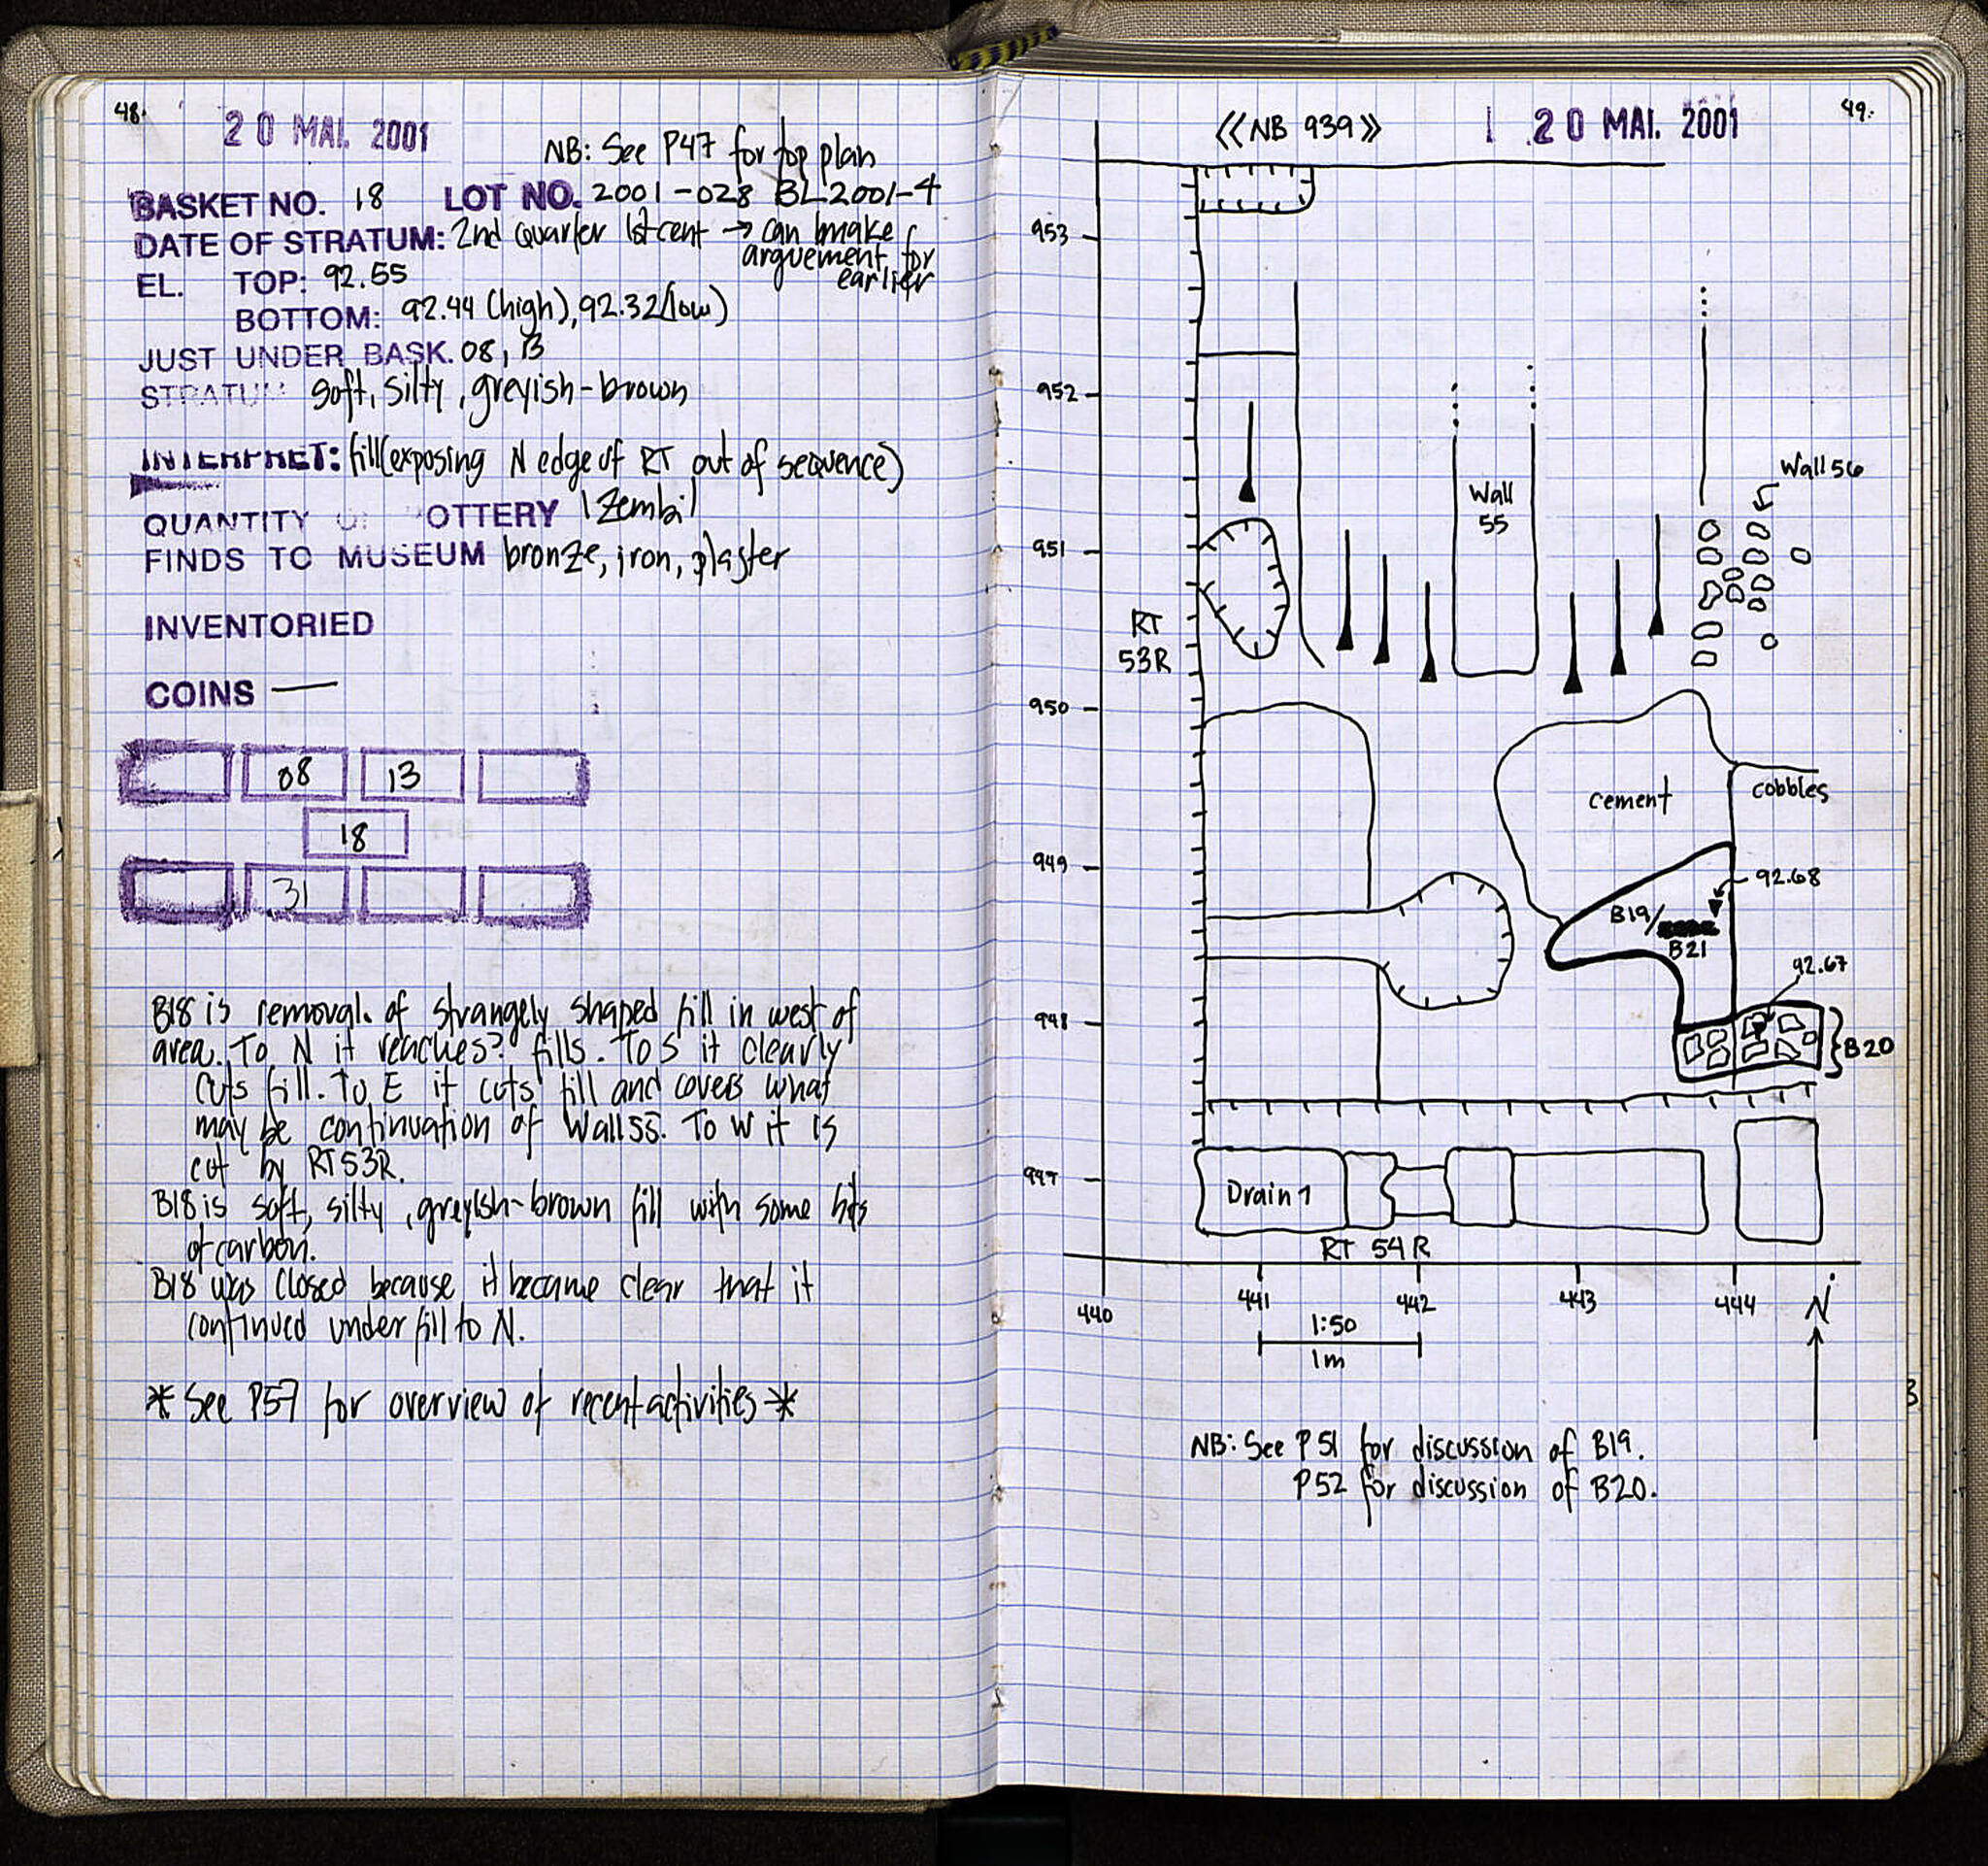 48.
20 MAI. 2001
NB: See P47 for top plan
BASKET NO. 18 LOT NO. 2001-028 BL2001-4
DATE OF STRATUM: 2nd quarter 1st cent → can bmake
arguement for
earlier
EL. TOP: 92.55
BOTTOM: 92.44 (high), 92.32 (low)
JUST UNDER BASK. 08, 13
STRATUM soft, silty, greyish-brown
INTERPRET: fill (exposing N edge of RT out of sequence)
QUANTITY OF POTTERY 1 Zembil
FINDS TO MUSEUM bronze, iron, plaster
INVENTORIED
COINS —
08 13
18
31
B18 is removal. of strangely shaped fill in west of
area. To N it reaches? fills. To S it clearly
cuts fill. To E it cuts fill and covers what
may be continuation of Wall 55. To W it is
cut by RT53R.
B18 is soft, silty, greyish-brown fill with some bits
of carbon.
B18 was closed because it became clear that it
continued under fill to N.
* See P57 for overview of recent activities *
<<NB 939>>
20 MAI. 2001
49.
953
952
951
950
949
948
947
Wall 56
Wall
55
RT
53R
cement
cobbles
92.68
B19/
B21
92.67
B20
Drain 1
RT 54R
440 441 442 443 444
N
1:50
1m
NB: See P 51 for discussion of B19.
P52 for discussion of B20.